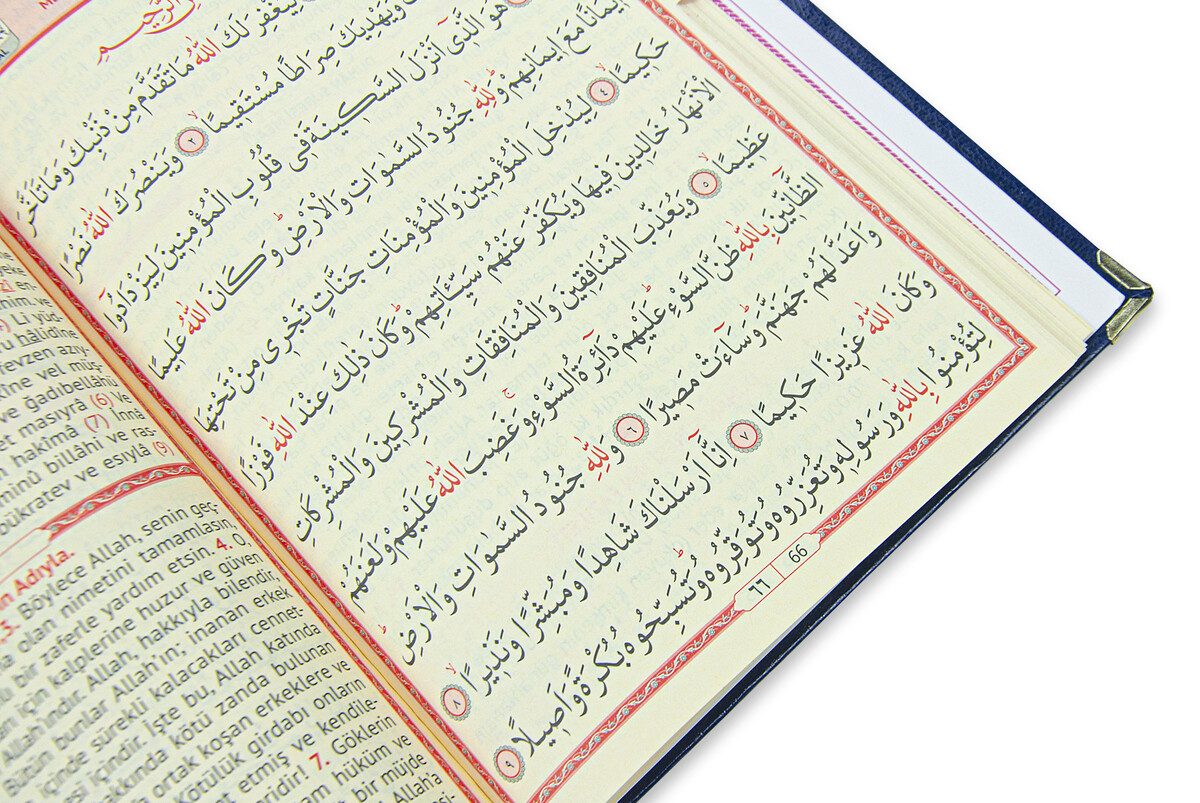 الرَّحِيمِ
لِيَغْفِرَ لَكَ اللّٰهُ مَا تَقَدَّمَ مِنْ ذَنْبِكَ وَمَا تَاَخَّرَ
وَيَهْدِيَكَ صِرَاطًا مُسْتَقِيمًا ٢ وَيَنْصُرَكَ اللّٰهُ نَصْرًا
هُوَ الَّذِى اَنْزَلَ السَّكِينَةَ فِى قُلُوبِ الْمُؤْمِنِينَ لِيَزْدَادُوا
اِيمَانًا مَعَ اِيمَانِهِمْ وَلِلّٰهِ جُنُودُ السَّمٰوَاتِ وَالْاَرْضِ وَكَانَ اللّٰهُ عَلِيمًا
حَكِيمًا ٤ لِيُدْخِلَ الْمُؤْمِنِينَ وَالْمُؤْمِنَاتِ جَنَّاتٍ تَجْرِى مِنْ تَحْتِهَا
الْاَنْهَارُ خَالِدِينَ فِيهَا وَيُكَفِّرَ عَنْهُمْ سَيِّـَٔاتِهِمْ وَكَانَ ذٰلِكَ عِنْدَ اللّٰهِ فَوْزًا
عَظِيمًا ٥ وَيُعَذِّبَ الْمُنَافِقِينَ وَالْمُنَافِقَاتِ وَالْمُشْرِكِينَ وَالْمُشْرِكَاتِ
الظَّٓانِّينَ بِاللّٰهِ ظَنَّ السَّوْءِ عَلَيْهِمْ دَٓائِرَةُ السَّوْءِ وَغَضِبَ اللّٰهُ عَلَيْهِمْ وَلَعَنَهُمْ
وَاَعَدَّ لَهُمْ جَهَنَّمَ وَسَٓاءَتْ مَصِيرًا ٦ وَلِلّٰهِ جُنُودُ السَّمٰوَاتِ وَالْاَرْضِ
وَكَانَ اللّٰهُ عَزِيزًا حَكِيمًا ٧ اِنَّٓا اَرْسَلْنَاكَ شَاهِدًا وَمُبَشِّرًا وَنَذِيرًا ٨
لِتُؤْمِنُوا بِاللّٰهِ وَرَسُولِهِ وَتُعَزِّرُوهُ وَتُوَقِّرُوهُ وَتُسَبِّحُوهُ بُكْرَةً وَاَصِيلًا ٩
٦٦ | 66
Li yüd-
hâlidîne
fevzen azıy-
kıne vel müş-
ve ğadıbellâhü
et masıyrâ (6) Ve
hakîmâ (7) İnnâ
minû billâhi ve ras-
bükratev ve esıylâ (9)
Adıyla.
3. Böylece Allah, senin geç-
olan nimetini tamamlasın,
bir zaferle yardım etsin. 4. O,
için kalplerine huzur ve güven
Allah'ındır. Allah, hakkıyla bilendir,
Bütün bunlar Allah'ın; inanan erkek
içinde sürekli kalacakları cennet-
içindir. İşte bu, Allah katında
hakkında kötü zanda bulunan
ortak koşan erkeklere ve
Kötülük girdabı onların
etmiş ve kendile-
7. Göklerin
hüküm ve
bir müjde
Allah'a